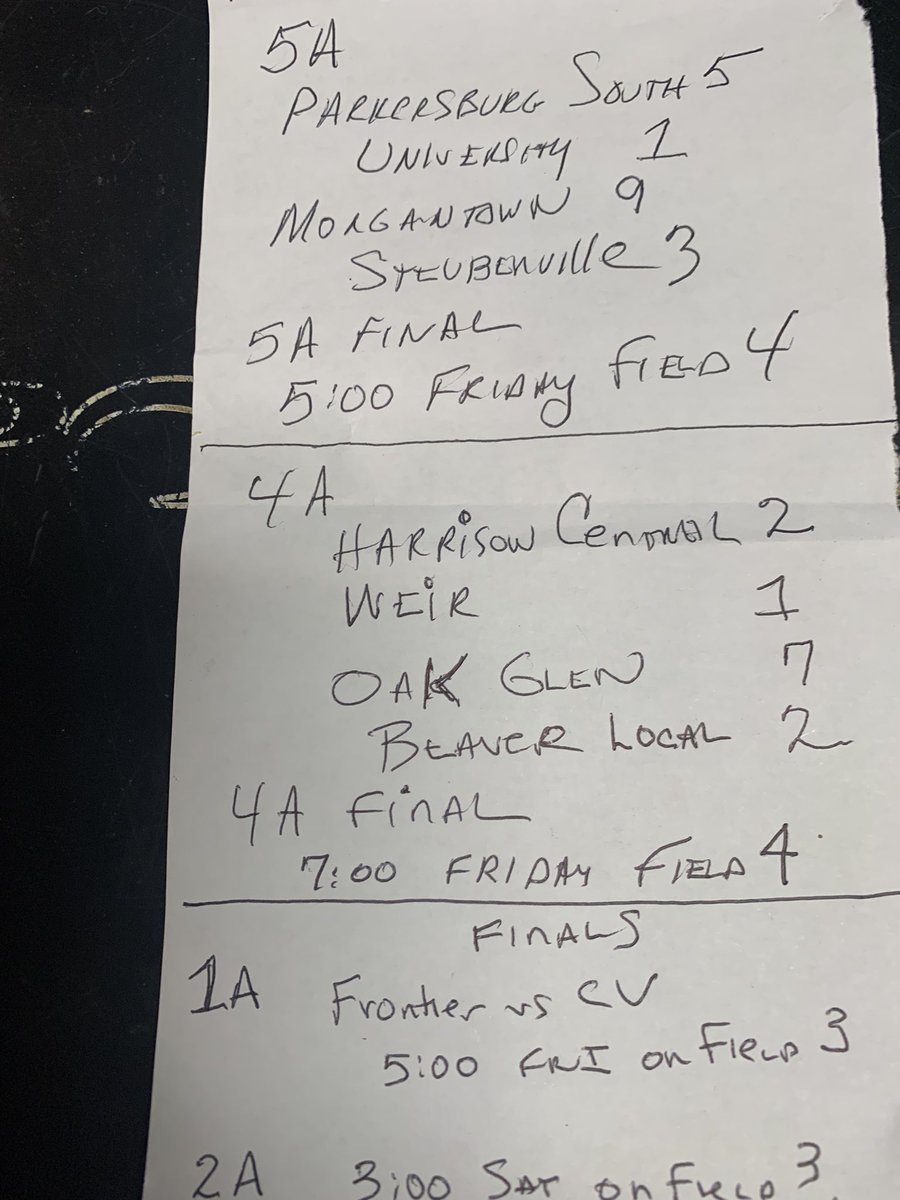 5A
PARKERSBURG SOUTH 5
UNIVERSITY 1
MORGANTOWN 9
STEUBENVIllE 3
5A FINAL
5:00 FRIDAY FIELD 4
4A
HARRiSON CENTRAL 2
WEiR 1
OAK GLEN 7
BEAVER LOCAL 2
4A FiNAL
7:00 FRIDAY FIELD 4
FINALS
1A Frontier vs CV
5:00 FRI on FIELD 3
2A 3:00 SAT on FIELD 3